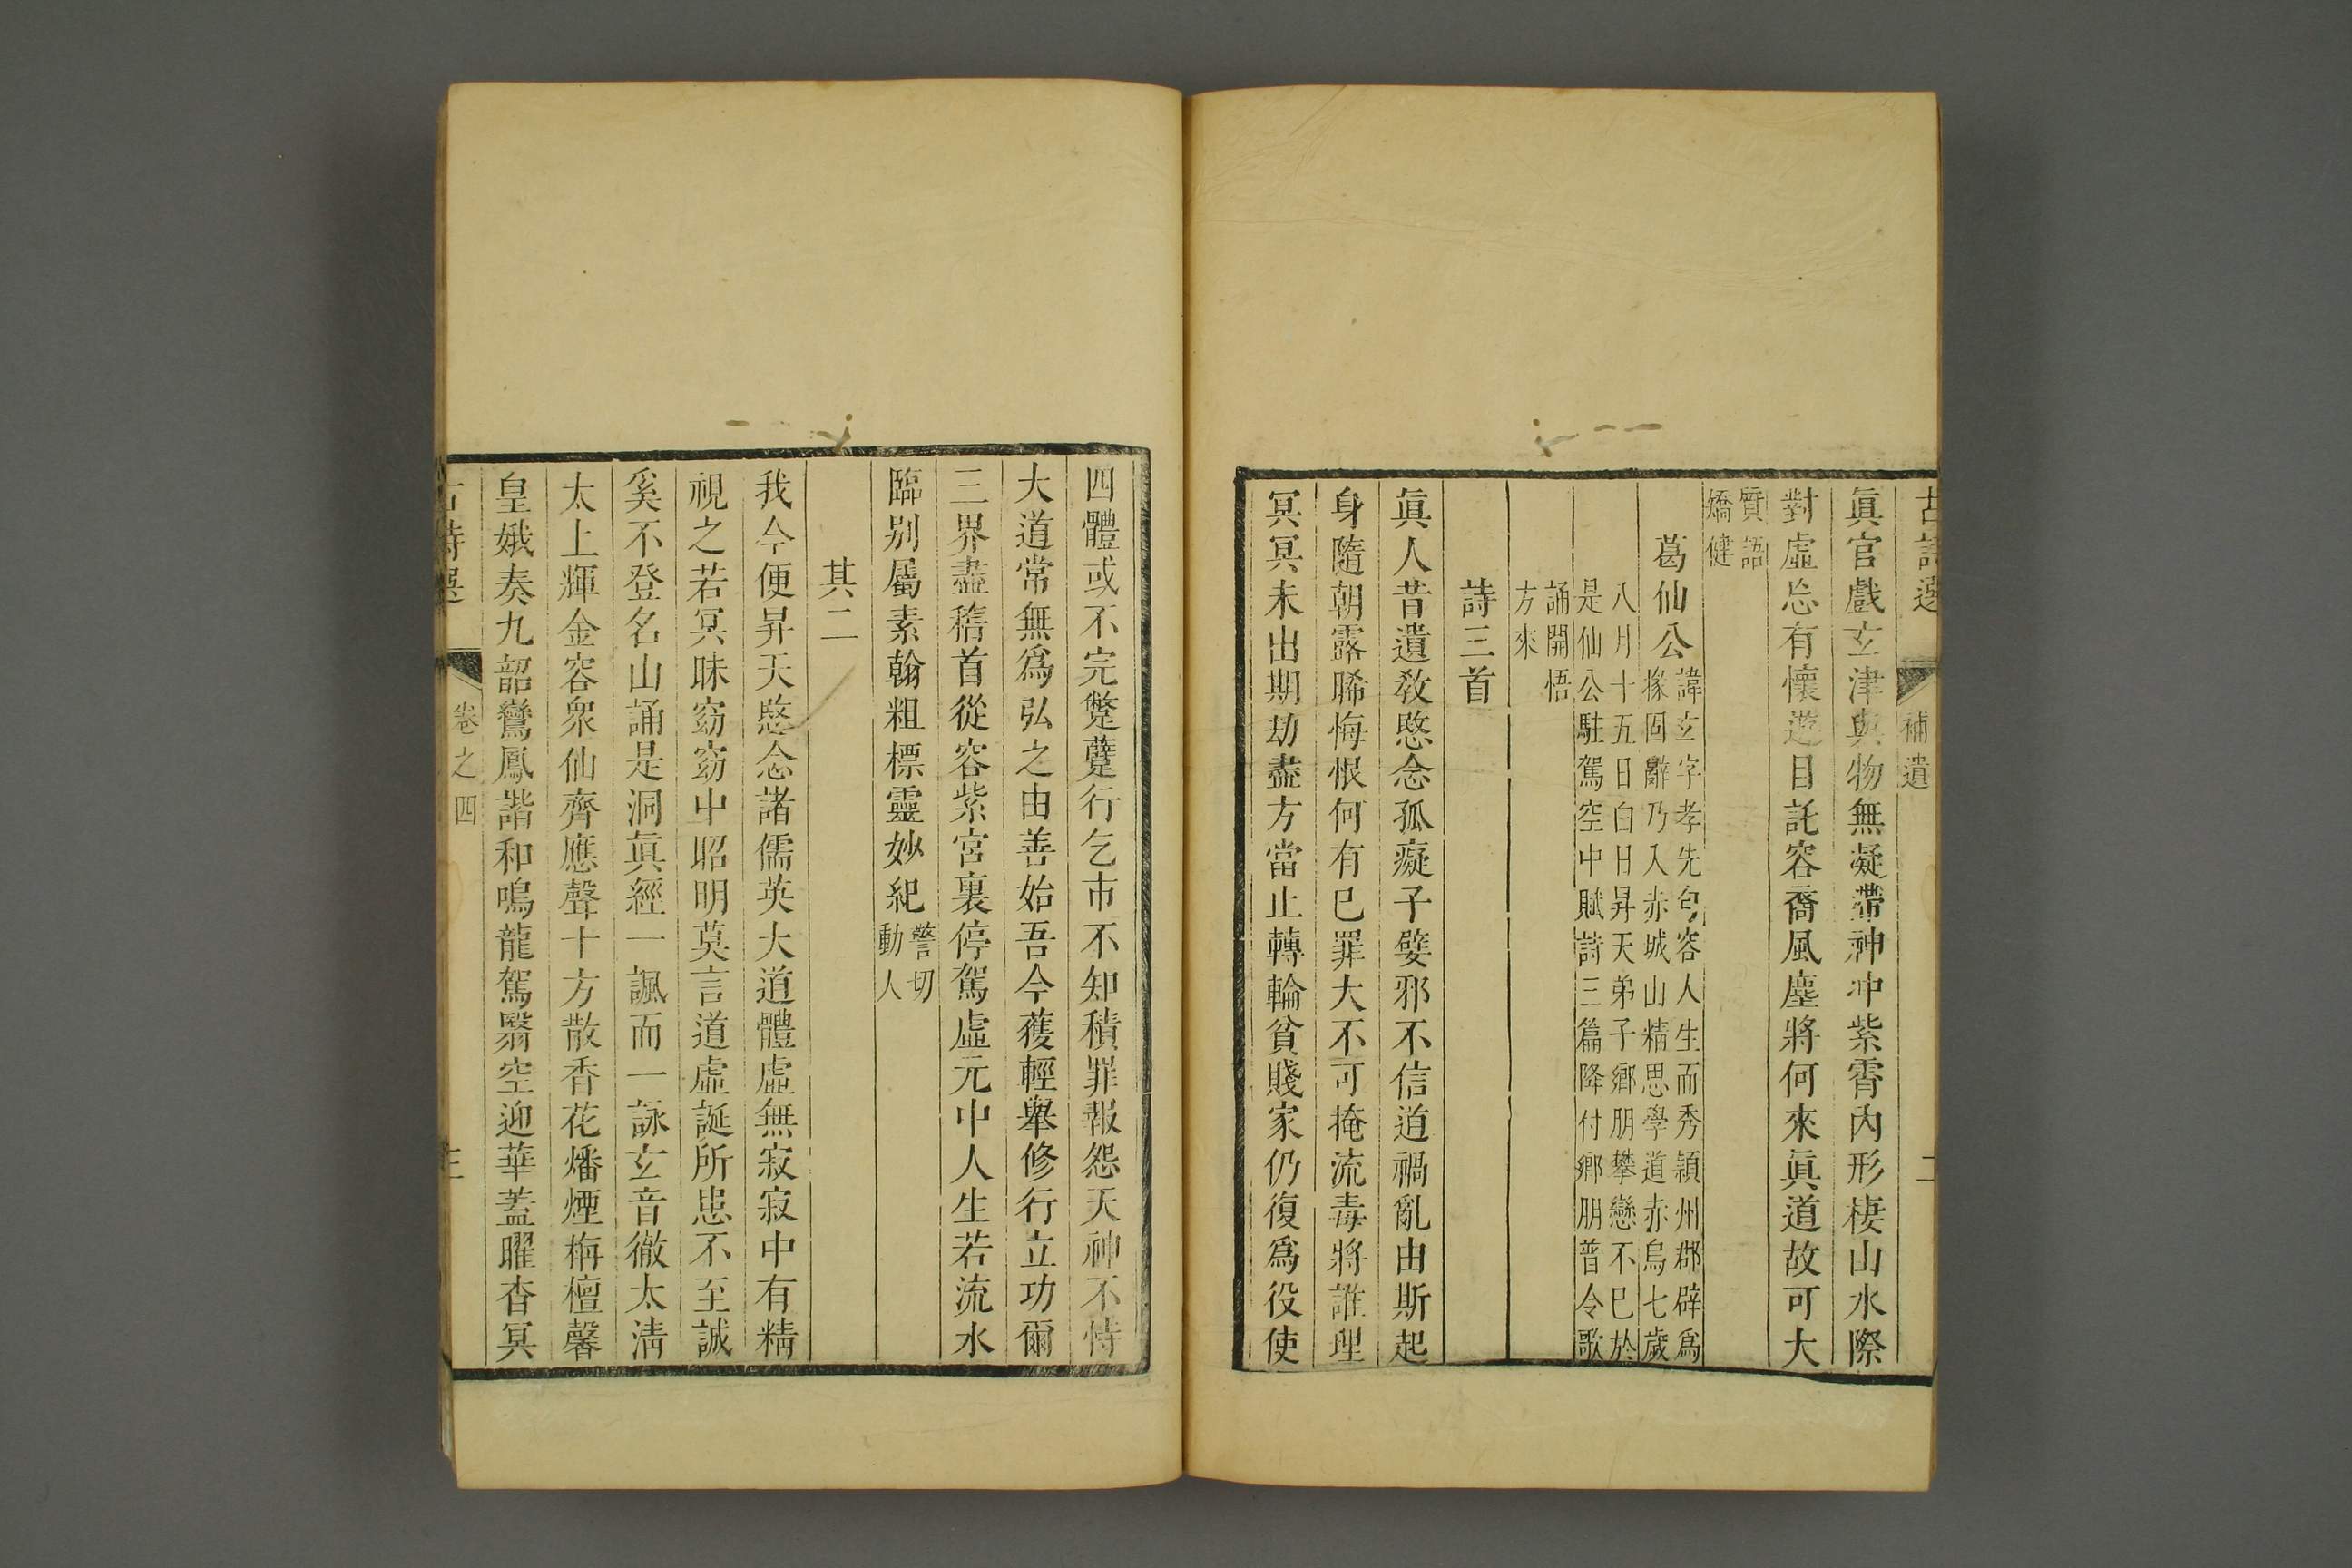 古詩選 補遺 二
眞官戲玄津與物無凝滯神冲紫霄內形棲山水際
對虛忘有懷遊目託容裔風塵將何來眞道故可大
質語
矯健
葛仙公
諱玄字孝先句容人生而秀穎州郡辟爲
掾固辭乃入赤城山精思學道赤烏七歲
八月十五日白日昇天弟子鄉朋攀戀不已於
是仙公駐駕空中賦詩三篇降付鄉朋普令歌
誦開悟
方來
詩三首
眞人昔遺敎愍念孤癡子嬖邪不信道禍亂由斯起
身隨朝露晞悔恨何有已罪大不可掩流毒將誰理
冥冥未出期劫盡方當止轉輪貧賤家仍復爲役使
四體或不完蹩躠行乞市不知積罪報怨天神不恃
大道常無爲弘之由善始吾今獲輕舉修行立功爾
三界盡稽首從容紫宮裏停駕虛元中人生若流水
臨別屬素翰粗標靈妙紀
警切
動人
其二
我今便昇天愍念諸儒英大道體虛無寂寂中有精
視之若冥昧窈窈中昭明莫言道虛誕所患不至誠
奚不登名山誦是洞眞經一諷而一詠玄音徹太淸
太上輝金容衆仙齊應聲十方散香花燔煙栴檀馨
皇娥奏九韶鸞鳳諧和鳴龍駕翳空迎華蓋曜杳冥
古詩選 卷之四 三